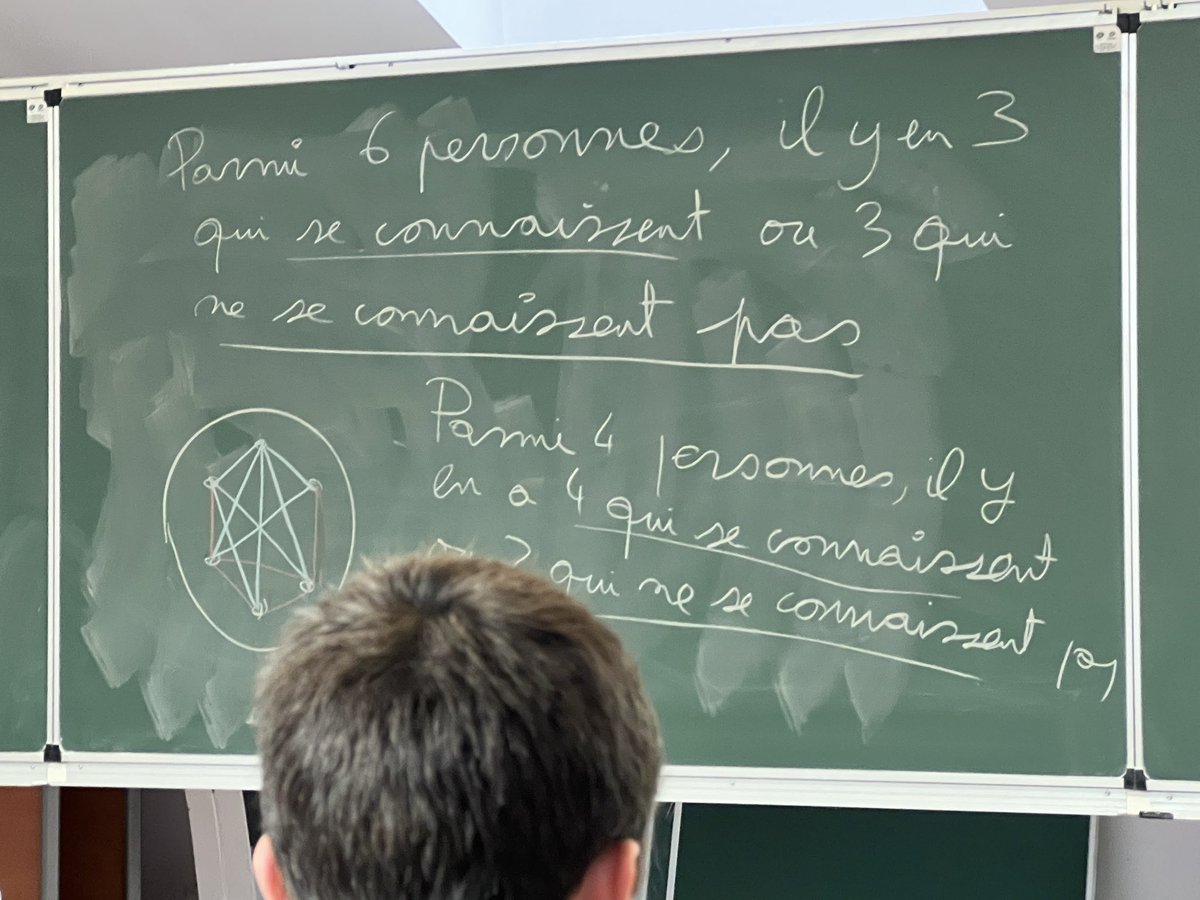 Parmi 6 personnes, il y en 3
qui se connaissent ou 3 qui
ne se connaissent pas
Parmi 4 personnes, il y
en a 4 qui se connaissent
qui ne se connaissent pas